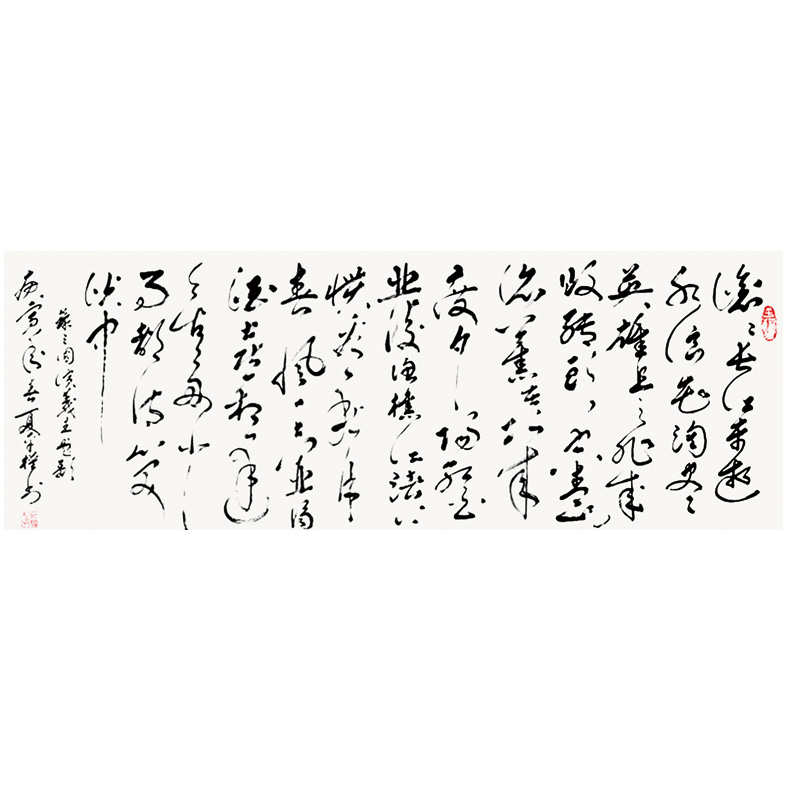 滚滚長江東逝
水浪花淘尽
英雄是非成
敗转头空青山
依舊在几
度夕阳红白
发渔樵江渚上
惯看秋月
春風一壶濁
酒喜相逢
古今多少
事都付笑
谈中
錄三国演義主题歌
庚寅年春夏